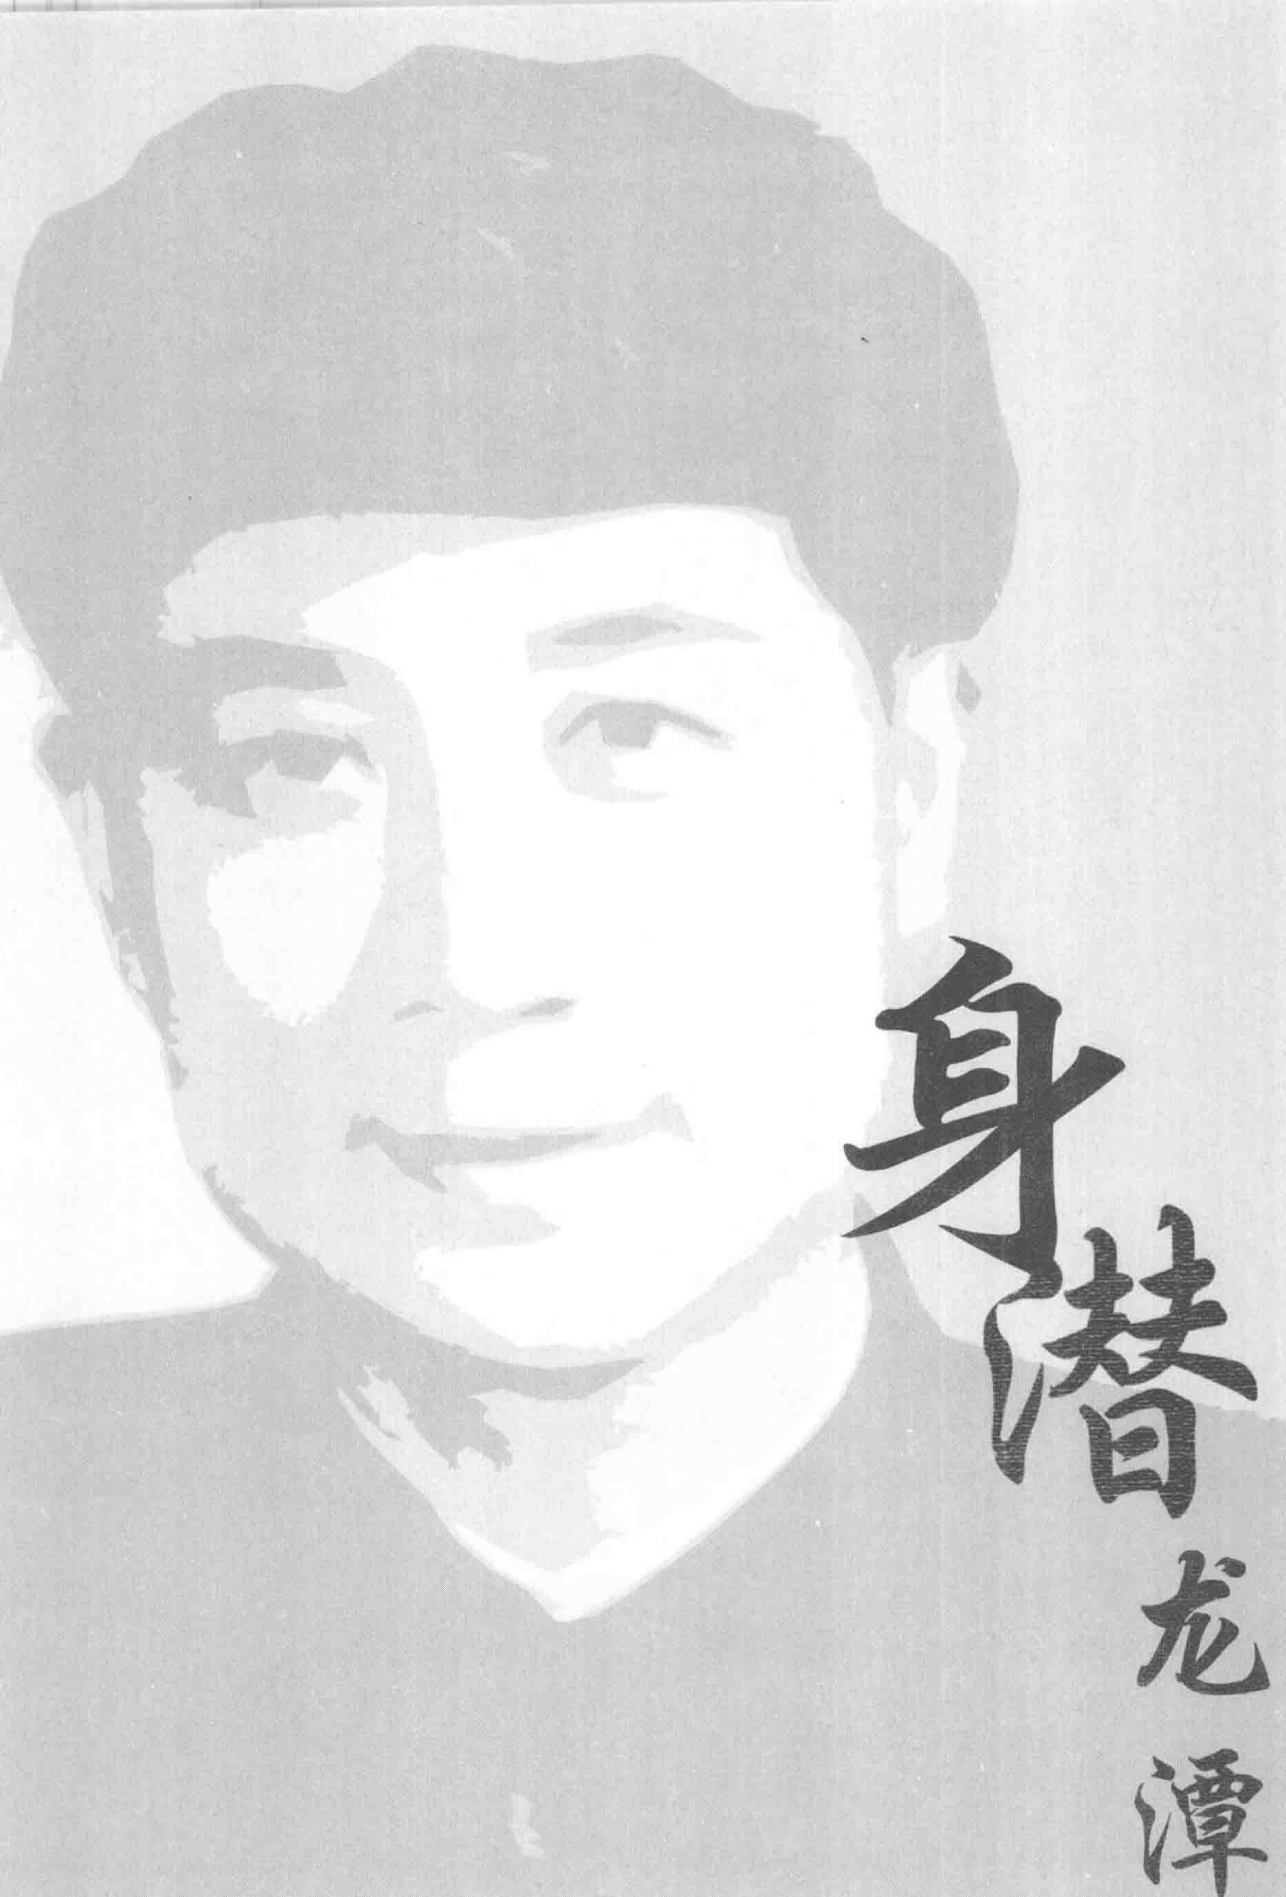 身潜龙潭